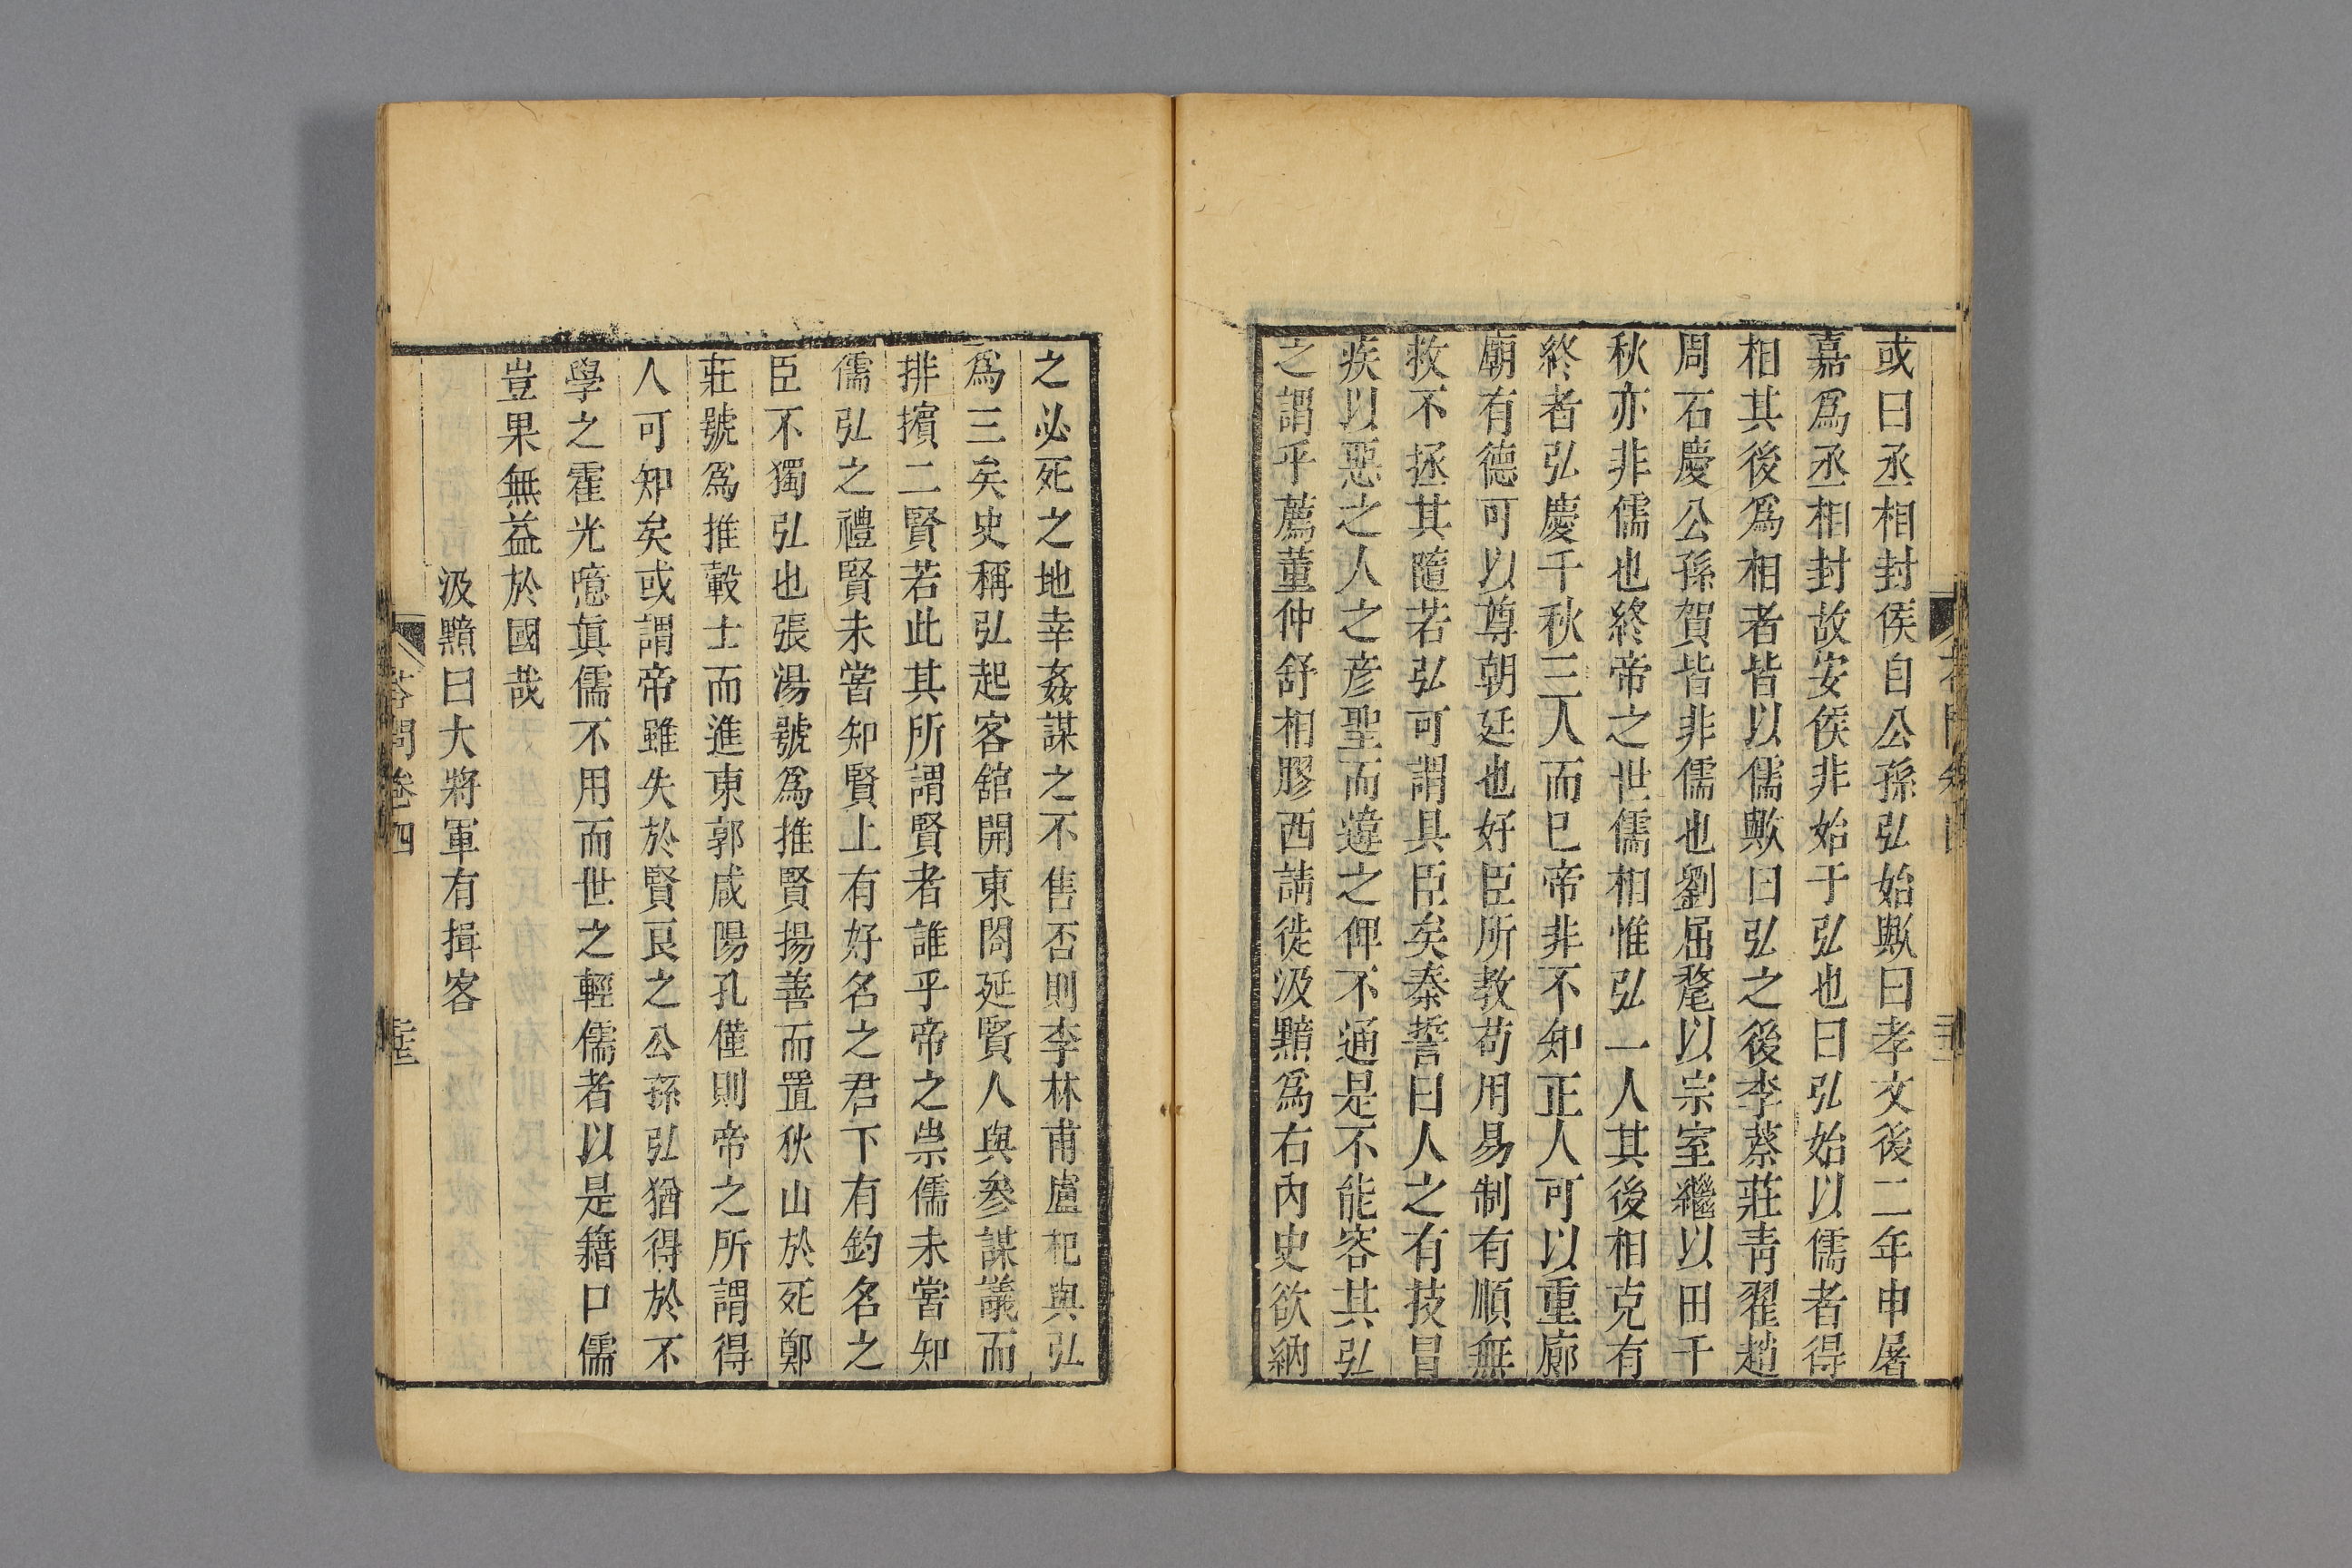 或曰丞相封侯自公孫弘始歟曰孝文後二年申屠
嘉爲丞相封故安侯非始于弘也曰弘始以儒者得
相其後爲相者皆以儒歟曰弘之後李蔡莊靑翟趙
周石慶公孫賀皆非儒也劉屈氂以宗室繼以田千
秋亦非儒也終帝之世儒相惟弘一人其後相克有
終者弘慶千秋三人而已帝非不知正人可以重廊
廟有德可以尊朝廷也好臣所教苟用易制有順無
救不拯其隨若弘可謂具臣矣秦誓曰人之有技冒
疾以惡之人之彦聖而違之俾不通是不能容其弘
之謂乎薦董仲舒相膠西請徙汲黯爲右內史欲納
之必死之地幸姦謀之不售否則李林甫盧杞與弘
爲三矣史稱弘起客舘開東閤延賢人與參謀議而
排擯二賢若此其所謂賢者誰乎帝之崇儒未嘗知
儒弘之禮賢未嘗知賢上有好名之君下有釣名之
臣不獨弘也張湯號爲推賢揚善而置狄山於死鄭
莊號爲推轂士而進東郭咸陽孔僅則帝之所謂得
人可知矣或謂帝雖失於賢良之公孫弘猶得於不
學之霍光噫眞儒不用而世之輕儒者以是籍口儒
豈果無益於國哉
汲黯曰大將軍有揖客
答問卷四